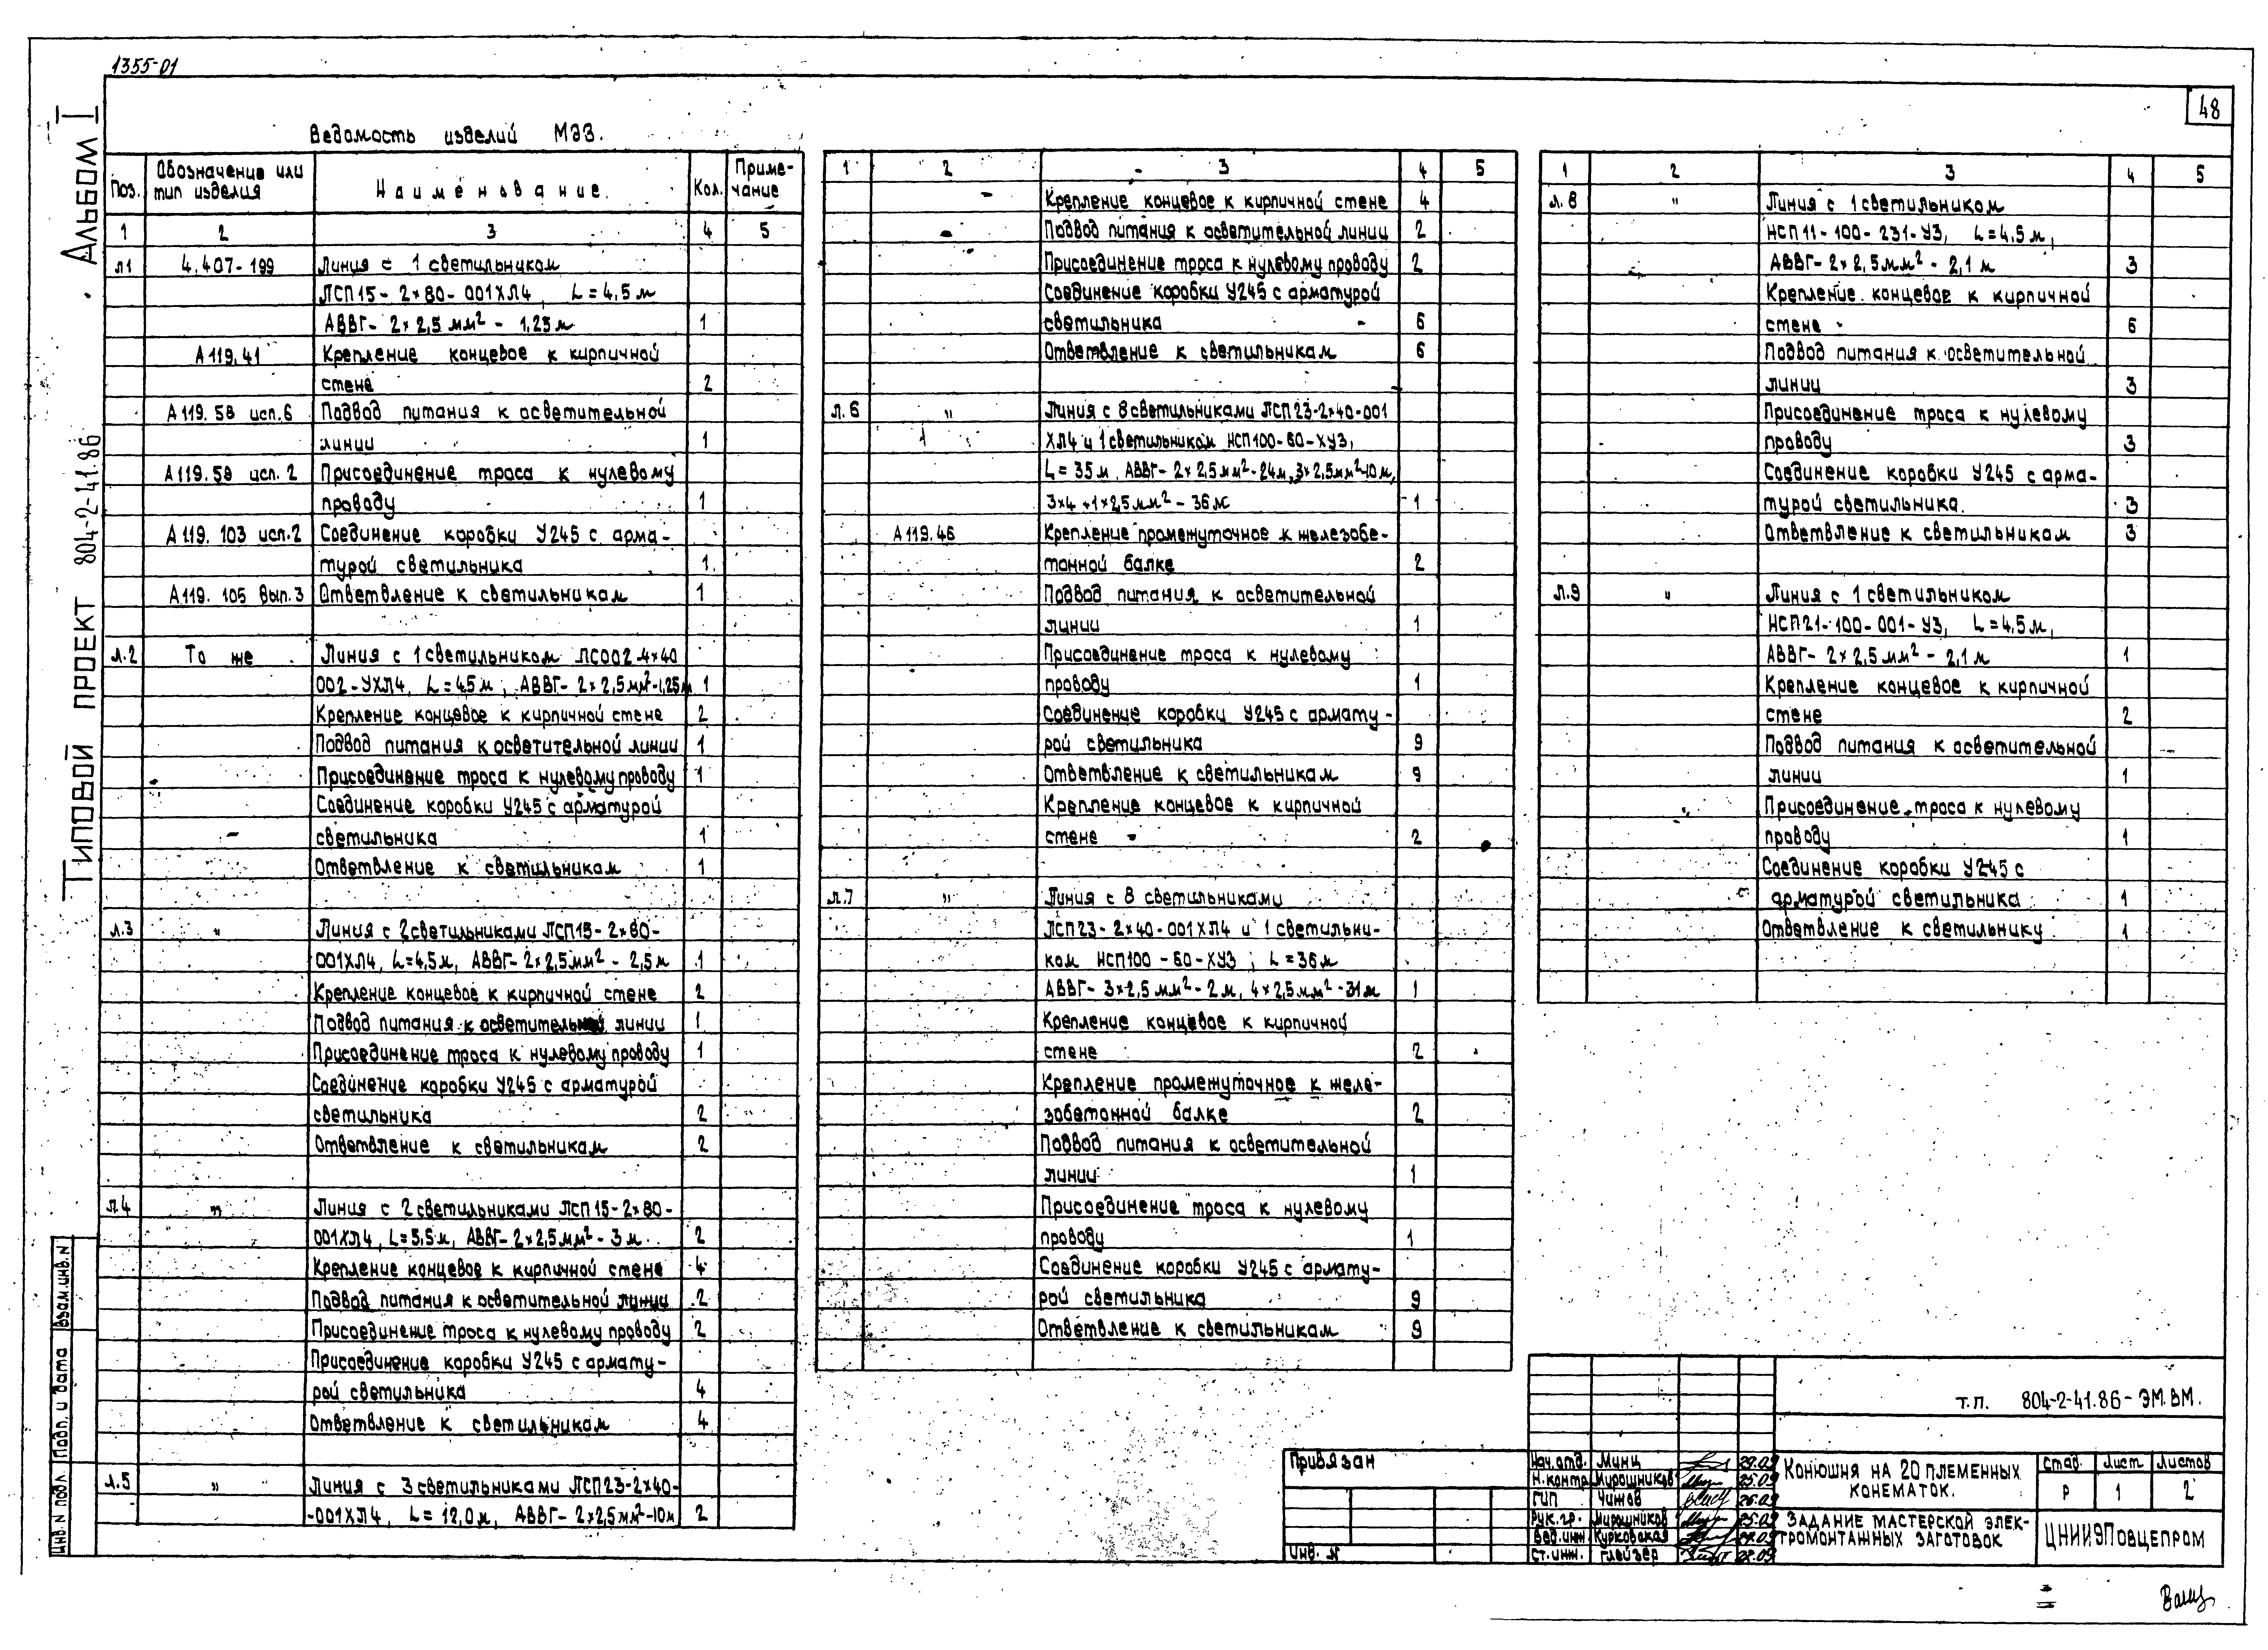 1355-01
48
Альбом I
Типовой проект 804-2-41.86
Ведомость изделий МЭЗ.
Поз. Обозначение или тип изделия Наименование. Кол. Приме-чание
1 2 3 4 5
л1 4.407-199 Линия с 1 светильником
ЛСП15-2×80-001ХЛ4, L=4,5м
АВВГ-2×2,5мм²-1,25м 1
А119.41 Крепление концевое к кирпичной
стене 2
А119.58 исп.6 Подвод питания к осветительной
линии 1
А119.59 исп.2 Присоединение троса к нулевому
проводу 1
А119.103 исп.2 Соединение коробки У245 с арма-
турой светильника 1.
А119.105 вып.3 Ответвление к светильникам 1
л.2 То же Линия с 1 светильником ЛСО02-4×40
002-УХЛ4, L=45м, АВВГ-2×2,5мм²-1,25м 1
Крепление концевое к кирпичной стене 2
Подвод питания к осветительной линии 1
Присоединение троса к нулевому проводу 1
Соединение коробки У245 с арматурой
светильника 1
Ответвление к светильникам 1
л.3 " Линия с 2 светильниками ЛСП15-2×80-
001ХЛ4, L=4,5м, АВВГ-2×2,5мм²-2,5м 1
Крепление концевое к кирпичной стене 2
Подвод питания к осветительной линии 1
Присоединение троса к нулевому проводу 1
Соединение коробки У245 с арматурой
светильника 2
Ответвление к светильникам 2
л.4 " Линия с 2 светильниками ЛСП15-2×80-
001ХЛ4, L=5,5м, АВВГ-2×2,5мм²-3м 2
Крепление концевое к кирпичной стене 4
Подвод питания к осветительной линии 2
Присоединение троса к нулевому проводу 2
Присоединение коробки У245 с армату-
рой светильника 4
Ответвление к светильникам 4
л.5 " Линия с 3 светильниками ЛСП23-2×40-
-001ХЛ4, L=12,0м, АВВГ-2×2,5мм²-10м 2
1 2 3 4 5
Крепление концевое к кирпичной стене 4
Подвод питания к осветительной линии 2
Присоединение троса к нулевому проводу 2
Соединение коробки У245 с арматурой
светильника 6
Ответвление к светильникам 6
л.6 " Линия с 8 светильниками ЛСП23-2×40-001
ХЛ4 и 1 светильником НСП100-60-ХУЗ,
L=35м, АВВГ-2×2,5мм²-24м, 3×2,5мм²-10м,
3×4+1×2,5мм²-36м 1
А119.46 Крепление промежуточное к железобе-
тонной балке 2
Подвод питания к осветительной
линии 1
Присоединение троса к нулевому
проводу 1
Соединение коробки У245 с армату-
рой светильника 9
Ответвление к светильникам 9
Крепление концевое к кирпичной
стене 2
л.7 " Линия с 8 светильниками
ЛСП23-2×40-001ХЛ4 и 1 светильни-
ком НСП100-60-ХУЗ; L=36м
АВВГ-3×2,5мм²-2м, 4×2,5мм²-31м 1
Крепление концевое к кирпичной
стене 2
Крепление промежуточное к желе-
зобетонной балке 2
Подвод питания к осветительной
линии 1
Присоединение троса к нулевому
проводу 1
Соединение коробки У245 с армату-
рой светильника 9
Ответвление к светильникам 9
1 2 3 4 5
л.8 " Линия с 1 светильником
НСП11-100-231-УЗ, L=4,5м,
АВВГ-2×2,5мм²-2,1м 3
Крепление концевое к кирпичной
стене 6
Подвод питания к осветительной
линии 3
Присоединение троса к нулевому
проводу 3
Соединение коробки У245 с арма-
турой светильника. 3
Ответвление к светильникам 3
л.9 " Линия с 1 светильником
НСП21-100-001-УЗ, L=4,5м,
АВВГ-2×2,5мм²-2,1м 1
Крепление концевое к кирпичной
стене 2
Подвод питания к осветительной
линии 1
Присоединение троса к нулевому
проводу 1
Соединение коробки У245 с
арматурой светильника 1
Ответвление к светильнику 1
Инв. N подл. Подп. и дата Взам.инв.N
Привязан
Инв. N
т.п. 804-2-41.86-ЭМ.ВМ.
Нач.отд. Минц 29.09
Н.контр. Мирошников 25.09
ГИП Чижов 26.09
Рук.гр. Мирошников 25.09
Вед.инж. Курковская 24.09
Ст.инж. Глейзер 22.09
Конюшня на 20 племенных
конематок.
Стад. Лист Листов
Р 1 2
Задание мастерской элек-
тромонтажных заготовок
ЦНИИЭПовцепром